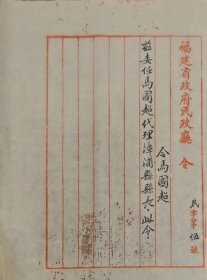 福建省政府民政廳 令
民字第伍號
令馬國超
茲委任馬國超代理漳浦縣縣長此令